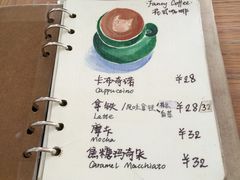 Fancy Coffee
花式咖啡
卡布奇诺 ¥28
Cappuccino
拿铁/风味拿铁 ¥28/32
Latte
摩卡 ¥32
Mocha
焦糖玛奇朵 ¥32
Caramel Macchiato